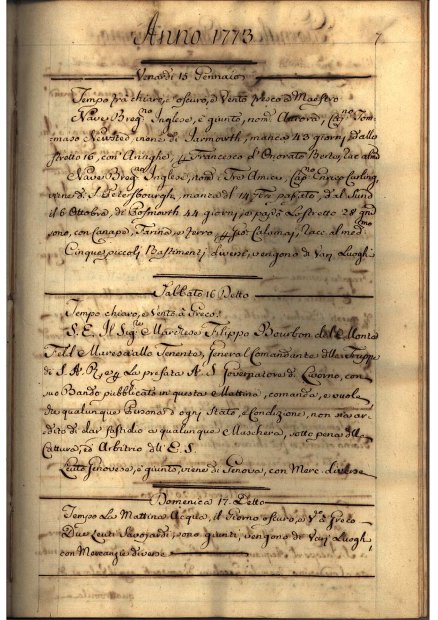 Anno 1773.
7
Venardi 15 Gennaio
Tempo frà chiaro, e oscuro, e Vento fresco a Maestro
Nave Breg.no Inglese, è giunto, nom. Aurora, Cap.no Tom-
maso Newsted, viene di Jarmouth, manca 43 giorni, dallo
stretto 16, con Aringhe, Francesco d'Onorato Berte,
Nave Breg.no Inglese, nom. i Tre Amici, Cap.no Enrico Carling
viene di S. Petersbourgh, manca del 14 passato, dal Sund
il 6 Ottobre, di 44 giorni, e passò lo stretto 28 giorni
sono, con Canape, Farina, e Ferro,
Cinque piccoli Bastimenti diversi, vengono di Varj Luoghi
Sabbato 16 Detto
Tempo chiaro, e Vento a Greco.
S. E. Il Sig.re Marchese Filippo Bourbon del Monte
Feld Maresciallo Tenente, General Comandante delle Truppe
di S. A. R., e la prefata A. S. Governatore di Livorno, con
suo Bando pubblicato in questa Mattina, comanda, e vuole
che qualunque Persona d'ogni Stato, e Condizione, non sia ar-
dito di dar fastidio a qualunque Maschera, sotto pena della
Cattura, ed Arbitrio dell' E. S.
Leuto Genovese, è giunto, viene di Genova, con Merc. diverse
Domenica 17. Detto
Tempo La Mattina Acqua, il Giorno oscuro, e V.o a Greco
Due Leuti Savojardi, sono giunti, vengono di Varj Luoghi,
con Mercanzie diverse